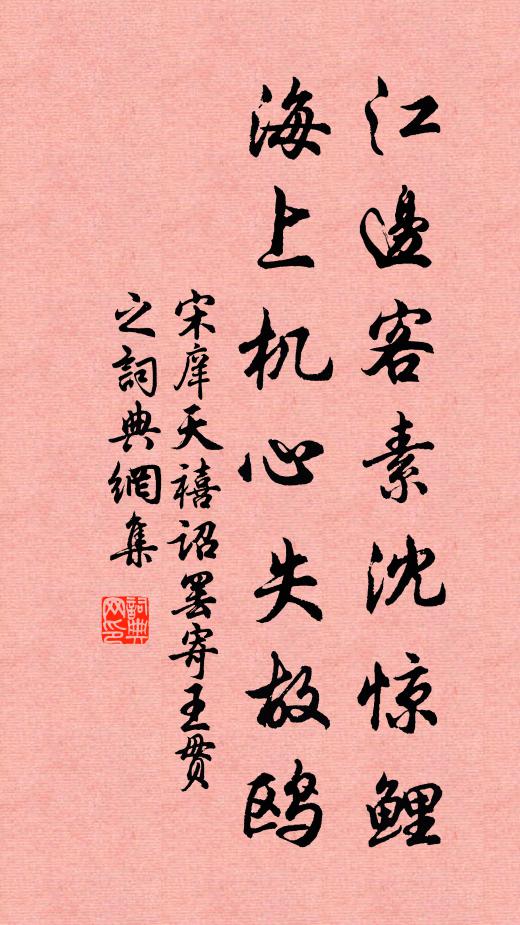 江邊客素沈惊鯉
海上机心失故鸥
宋庠天禧诏罢寄王贯
之詞典網集
詞典
网印